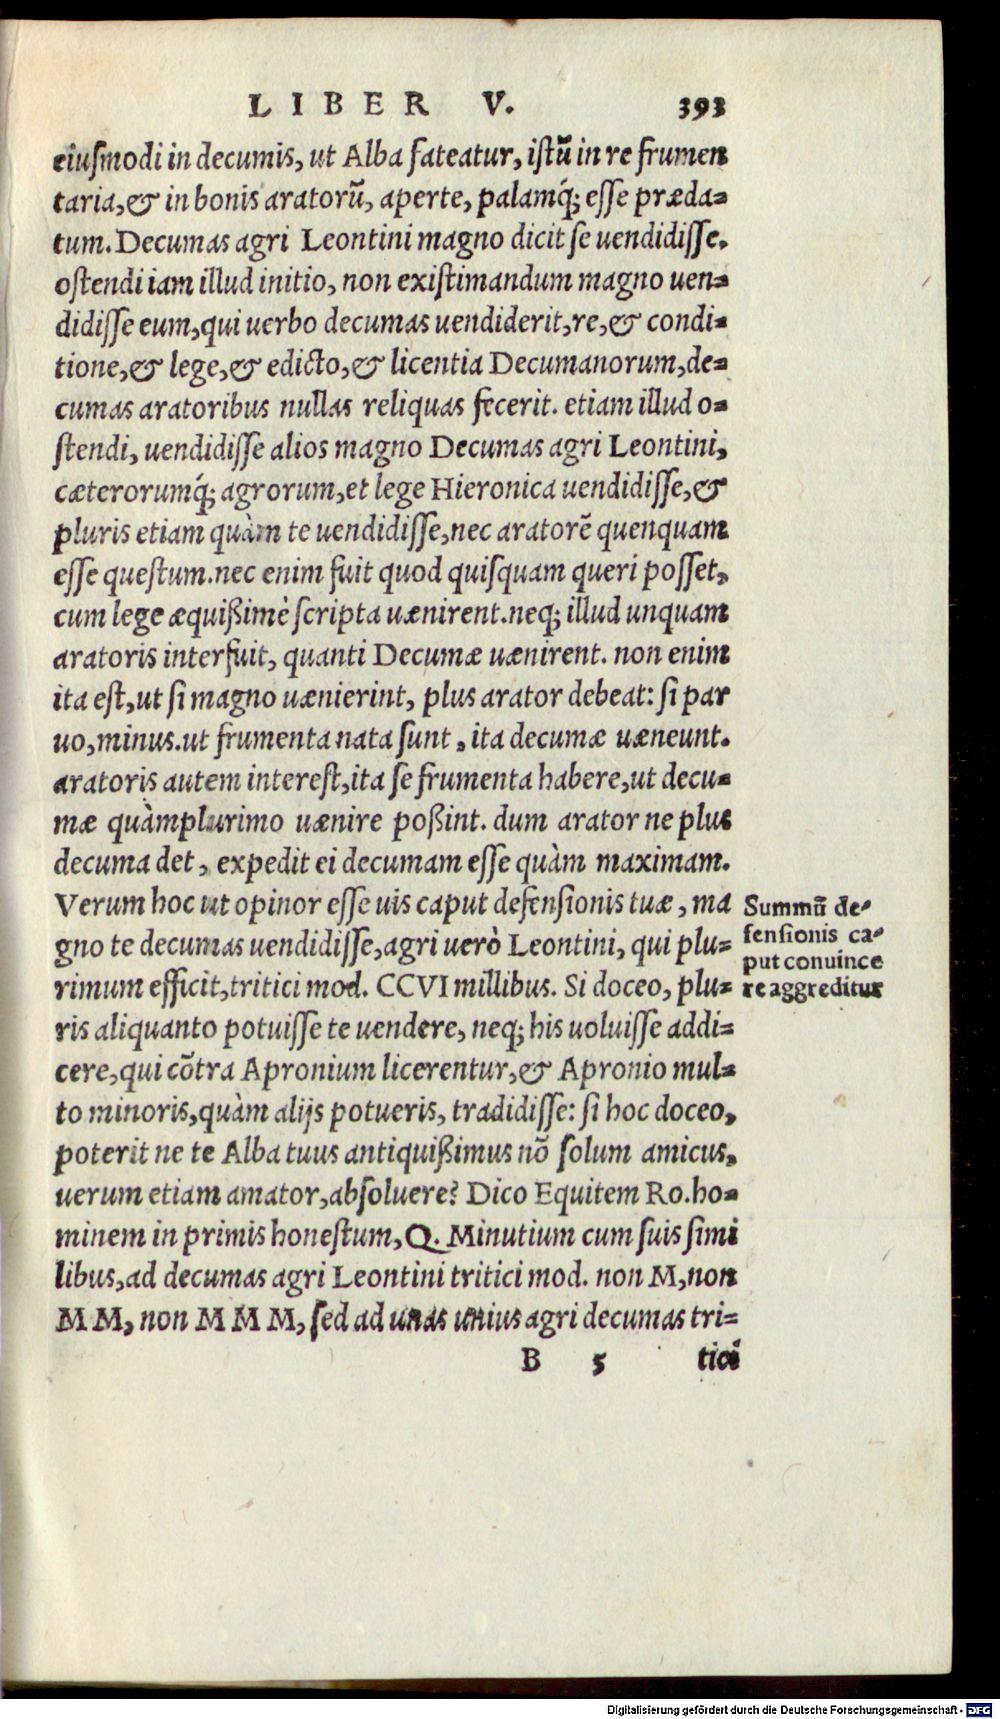 LIBER V. 393
eiusmodi in decumis, ut Alba fateatur, istũ in re frumen
taria, & in bonis aratorũ, aperte, palamq́; esse præda=
tum. Decumas agri Leontini magno dicit se uendidisse.
ostendi iam illud initio, non existimandum magno uen=
didisse eum, qui uerbo decumas uendiderit, re, & condi=
tione, & lege, & edicto, & licentia Decumanorum, de=
cumas aratoribus nullas reliquas fecerit. etiam illud o=
stendi, uendidisse alios magno Decumas agri Leontini,
cæterorumq́; agrorum, et lege Hieronica uendidisse, &
pluris etiam quàm te uendidisse, nec aratorẽ quenquam
esse questum. nec enim fuit quod quisquam queri posset,
cum lege æquißimè scripta uænirent. neq; illud unquam
aratoris interfuit, quanti Decumæ uænirent. non enim
ita est, ut si magno uænierint, plus arator debeat: si par
uo, minus. ut frumenta nata sunt, ita decumæ uæneunt.
aratoris autem interest, ita se frumenta habere, ut decu=
mæ quàmplurimo uænire poßint. dum arator ne plus
decuma det, expedit ei decumam esse quàm maximam.
Verum hoc ut opinor esse uis caput defensionis tuæ, ma
gno te decumas uendidisse, agri uerò Leontini, qui plu=
rimum efficit, tritici mod. CCVI millibus. Si doceo, plu=
ris aliquanto potuisse te uendere, neq; his uoluisse addi=
cere, qui cõtra Apronium licerentur, & Apronio mul=
to minoris, quàm alijs potueris, tradidisse: si hoc doceo,
poterit ne te Alba tuus antiquißimus nõ solum amicus,
uerum etiam amator, absoluere? Dico Equitem Ro. ho=
minem in primis honestum, Q. Minutium cum suis simi
libus, ad decumas agri Leontini tritici mod. non M, non
M M, non M M M, sed ad unas unius agri decumas tri=
B 5 tici
Summũ de=
fensionis ca=
put conuince
re aggreditur
Digitalisierung gefördert durch die Deutsche Forschungsgemeinschaft - DFG